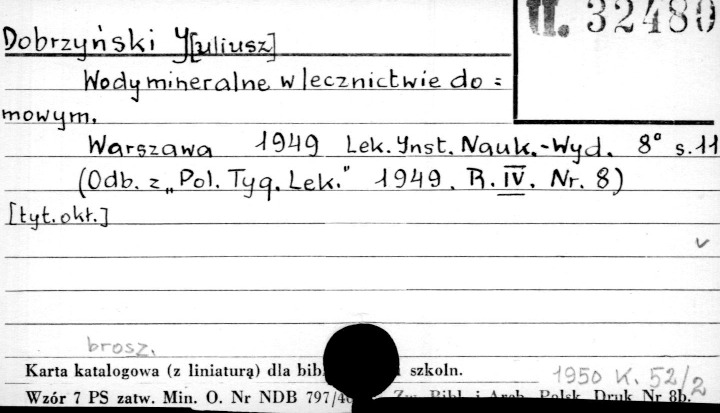 II. 32480
Dobrzyński J[uliusz]
Wody mineralne w lecznictwie do=
mowym.
Warszawa 1949 Lek. Inst. Nauk.-Wyd. 8° s.11
(Odb. z „Pol. Tyg. Lek." 1949. R. IV. Nr. 8)
[tyt. okł.]
v
brosz.
Karta katalogowa (z liniaturą) dla szkoln.
1950 K. 52/2
Wzór 7 PS zatw. Min. O. Nr NDB Bibl. i Arch. Polsk. Druk Nr 8b.